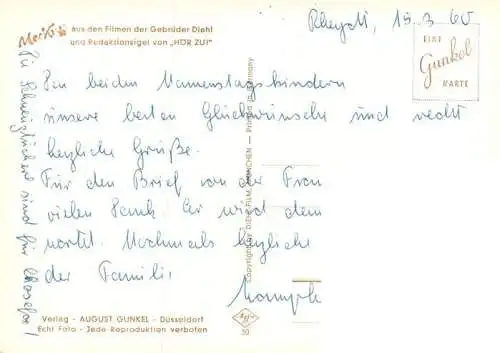 Mecki aus den Filmen der Gebrüder Diehl
und Redaktionsigel von „HÖR ZU!"
Rheydt, 15.3.60
EINE
Gunkel
KARTE
Den beiden Namenstagskindern
unsere besten Glückwünsche und recht
herzliche Grüße.
Für den Brief von der Frau
vielen Dank. Er wird dem
Nochmals herzliche
der Familie
Die sind für
Copyright by DIEHL-FILM, MÜNCHEN — Printed in Germany
Verlag - AUGUST GUNKEL - Düsseldorf
Echt Foto - Jede Reproduktion verboten
Agfa
30